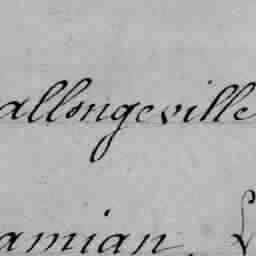 allongeville
amian.